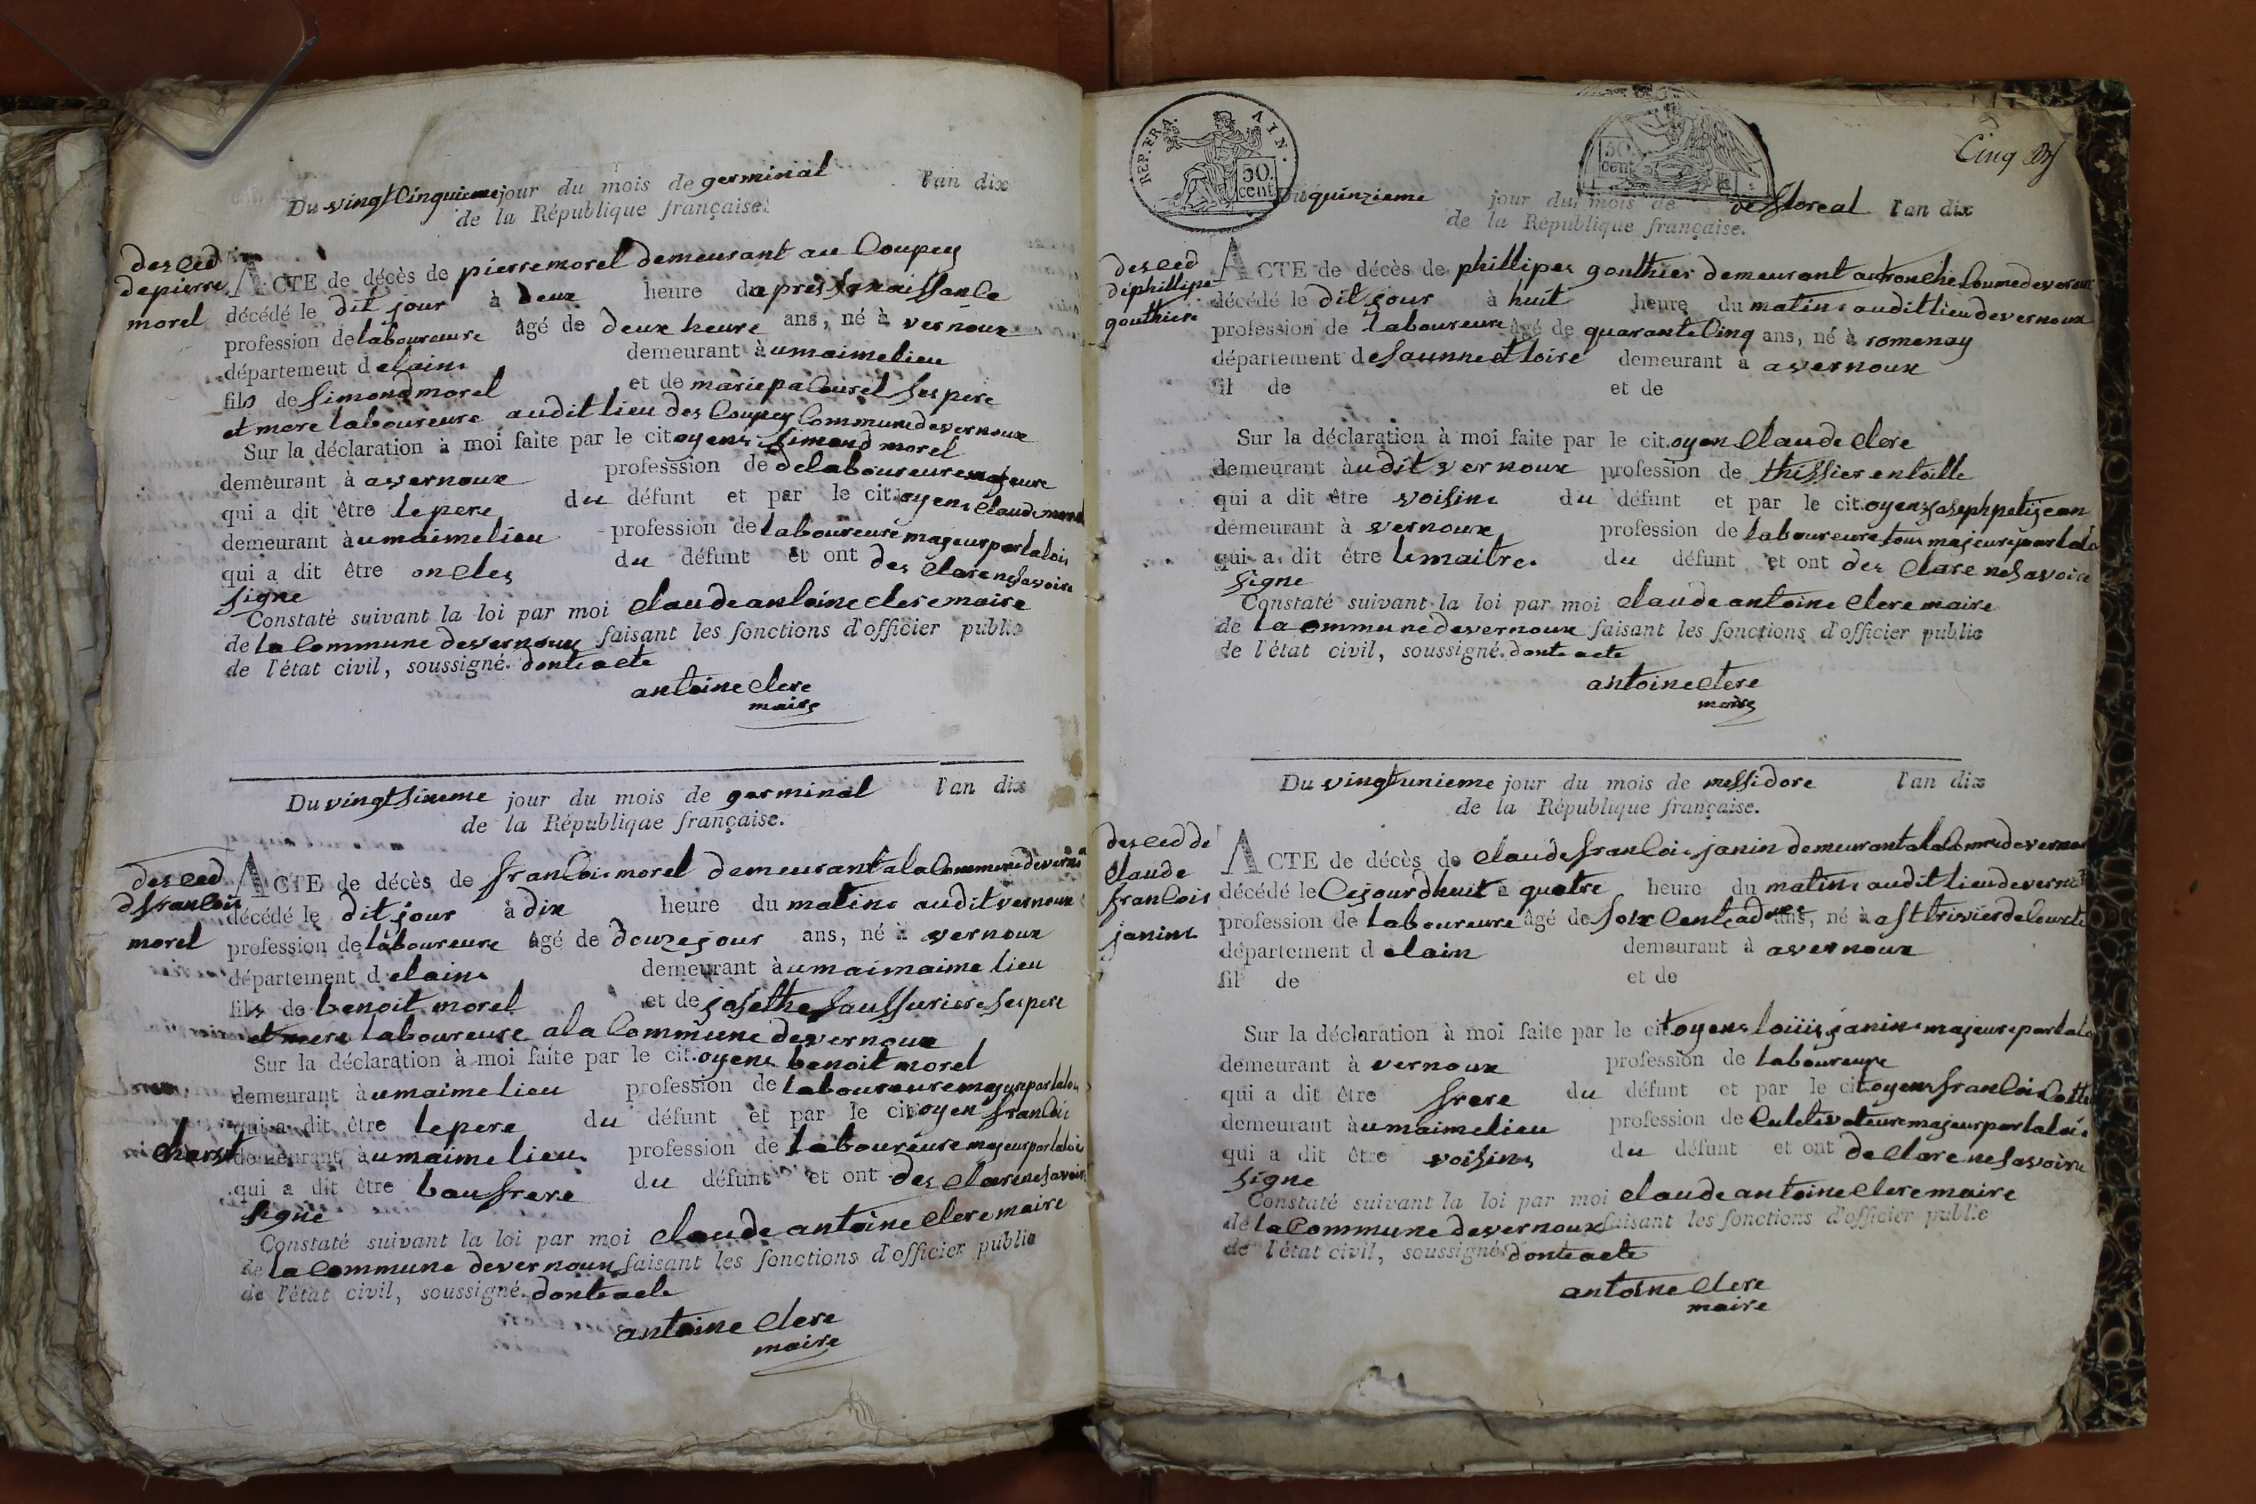 Du vingt Cinquieme jour du mois de germinal l'an dix
de la République française.
des ced
de pierre
morel
ACTE de décès de pierre morel demeurant au Coupey
décédé le dit jour à deux heure d apres sa naissance
profession de laboureure âgé de deux heure ans, né à vernoux
département d elain demeurant à umaimelieu
fils de Simond morel et de marie pacourel ses pere
et mere laboureure audit lieu des Coupey Commune de vernoux
Sur la déclaration à moi faite par le citoyen Simond morel
demeurant à avernoux professsion de delaboureure majeure
qui a dit être le pere du défunt et par le cit.oyen Claude morel
demeurant à umaimelieu profession de laboureure majeur par la loi
qui a dit être oncles du défunt et ont des Clare ne savoire
signe
Constaté suivant la loi par moi Claude antoine Clere maire
de la Commune de vernoux faisant les fonctions d'officier public
de l'état civil, soussigné. dont acte
antoine Clere
maire
Du vingt sixeme jour du mois de germinal l'an dix
de la République française.
des ced
d francois
morel
ACTE de décès de francois morel demeurant a la Commune de vernou
décédé le dit jour à dix heure du matin audit vernoux
profession de laboureure âgé de douze jour ans, né à vernoux
département d elain demeurant à umaimaime lieu
fils de benoit morel et de josethe saussuriere ses pere
et mere laboureure a la Commune de vernoux
Sur la déclaration à moi faite par le cit.oyen benoit morel
demeurant à umaime lieu profession de laboureure majeur par la loi
qui a dit être le pere du défunt et par le citoyen francois
charst demeurant à umaime lieu profession de laboureure majeur par la loi
qui a dit être bau frere du défunt et ont des Clare ne savoir
signe
Constaté suivant la loi par moi Claude antoine Clere maire
de la Commune de vernoux faisant les fonctions d'officier public
de l'état civil, soussigné. dont acte
antoine Clere
maire
REP. FRA. AIN.
50.
cent
50.
cent
Cinq
Du quinzieme jour du mois de de floreal l'an dix
de la République française.
des ced
de phillipe
gouthier
ACTE de décès de phillipes gouthier demeurant au tronche Coume de vernoux
décédé le dit jour à huit heure du matin audit lieu de vernoux
profession de laboureure âgé de quarante Cinq ans, né à romenay
département de saunne et loire demeurant à avernoux
fil de et de
Sur la déclaration à moi faite par le cit.oyen Claude Clere
demeurant à udit vernoux profession de thissier en toille
qui a dit être voisin du défunt et par le cit.oyen joseph petijean
demeurant à vernoux profession de laboureure tous majeure par la loi
qui a dit être le maitre du défunt et ont des Clare ne savoire
signe
Constaté suivant la loi par moi Claude antoine Clere maire
de la Commune de vernoux faisant les fonctions d'officier public
de l'état civil, soussigné. dont acte
antoine Clere
maire
Du vingt unieme jour du mois de messidore l'an dix
de la République française.
des ced de
Claude
francois
janin
ACTE de décès de Claude francois janin demeurant a la Comre de vernoux
décédé le Cejourdhuit à quatre heure du matin audit lieu de vernoux
profession de laboureure âgé de ans, né à a st trivier de Courte
département d elain demeurant à avernoux
fil de et de
Sur la déclaration à moi faite par le citoyen loüis janin majeure par la loi
demeurant à vernoux profession de laboureure
qui a dit être frere du défunt et par le citoyen francois Cotte
demeurant à umaimelieu profession de Culetivateure majeur par la loi
qui a dit être voisin du défunt et ont de Clare ne savoire
signe
Constaté suivant la loi par moi Claude antoine Clere maire
de la Commune de vernoux faisant les fonctions d'officier public
de l'état civil, soussigné dont acte
antoine Clere
maire